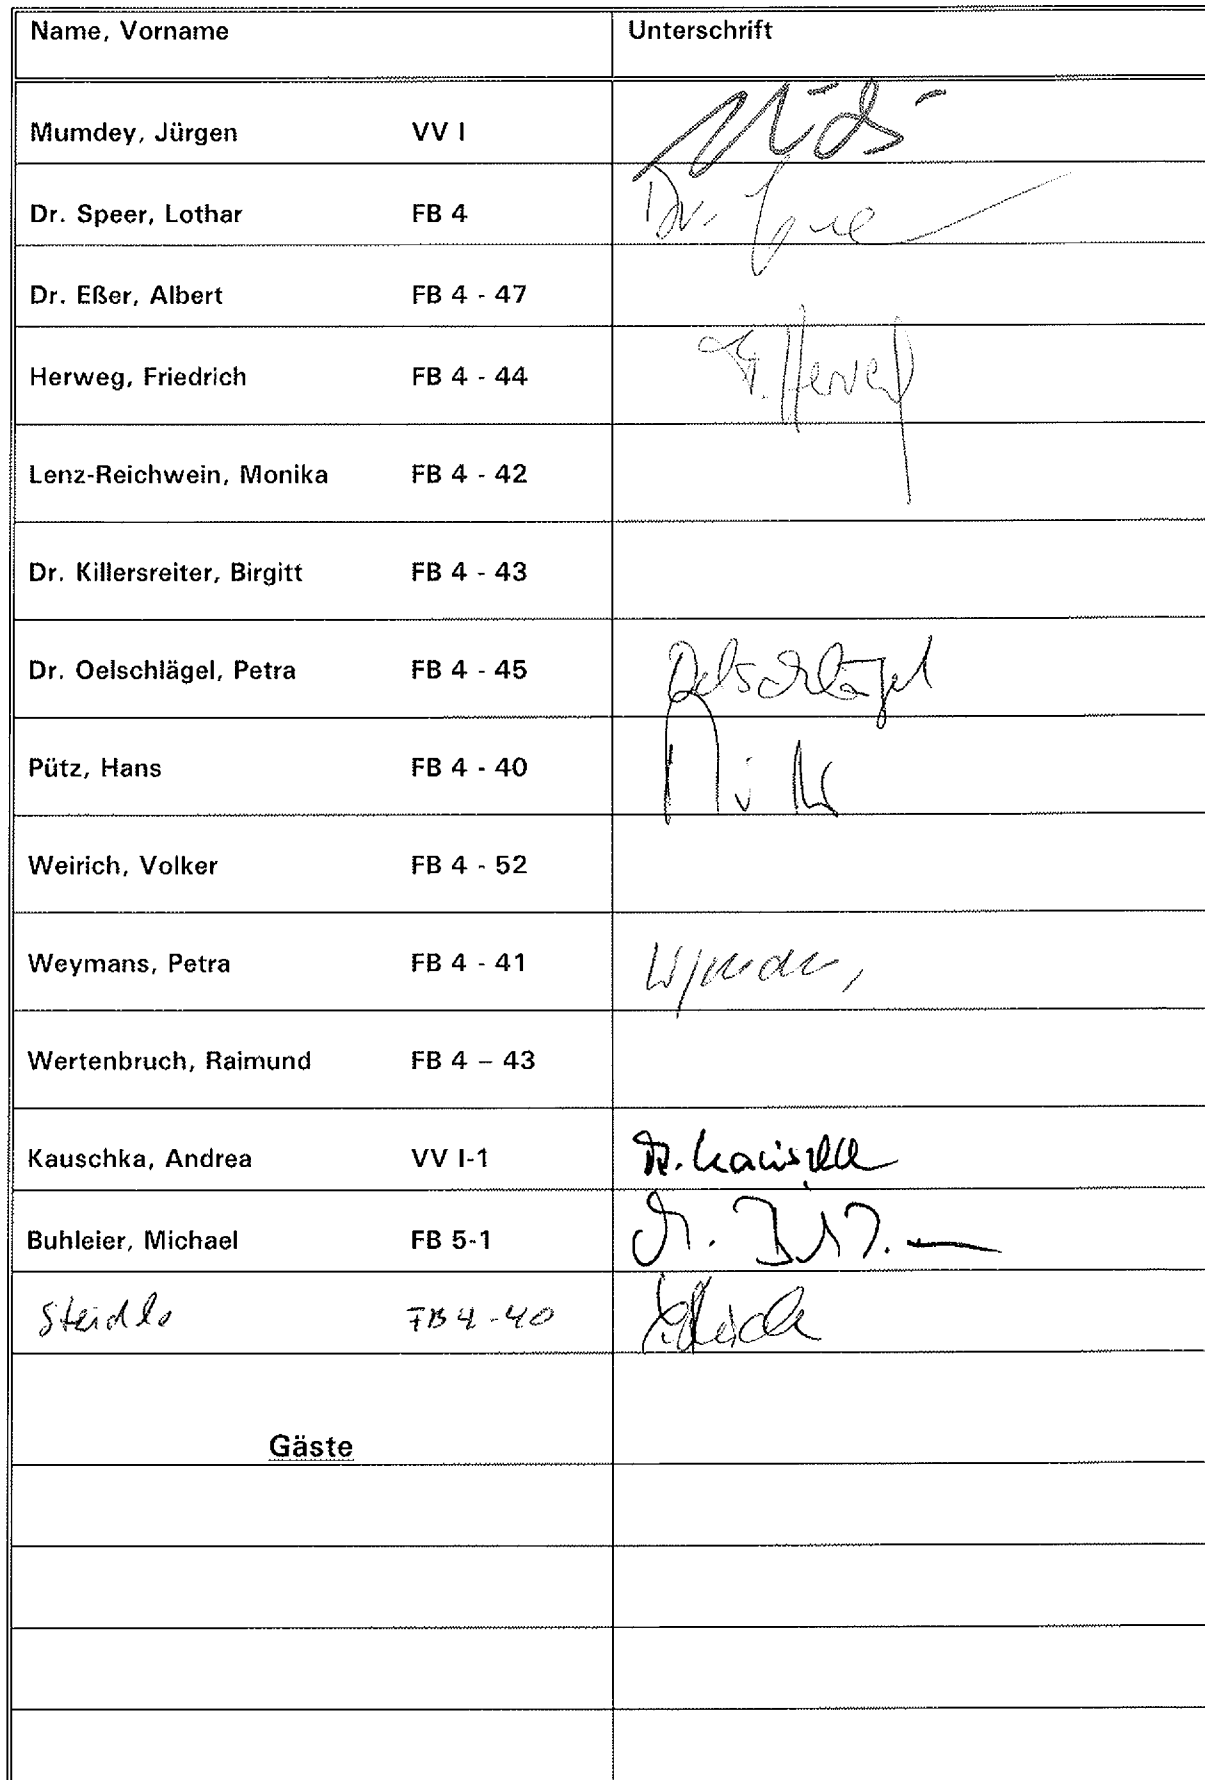 Name, Vorname Unterschrift
Mumdey, Jürgen VV I
Dr. Speer, Lothar FB 4 Dr.
Dr. Eßer, Albert FB 4 - 47
Herweg, Friedrich FB 4 - 44
Lenz-Reichwein, Monika FB 4 - 42
Dr. Killersreiter, Birgitt FB 4 - 43
Dr. Oelschlägel, Petra FB 4 - 45 Oelschlägel
Pütz, Hans FB 4 - 40
Weirich, Volker FB 4 - 52
Weymans, Petra FB 4 - 41
Wertenbruch, Raimund FB 4 – 43
Kauschka, Andrea VV I-1
Buhleier, Michael FB 5-1
Steidle FB 4 - 40
Gäste